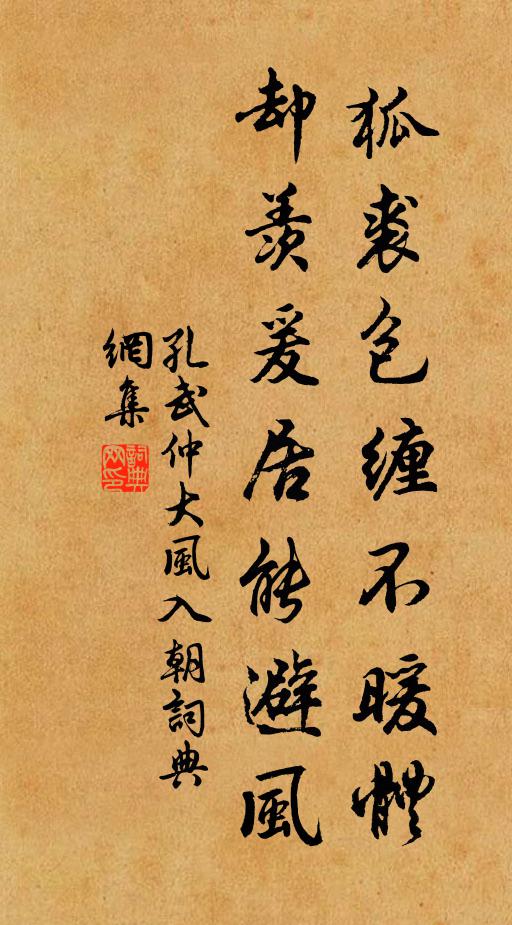 狐裘包缠不暖體
却羨爰居能避風
孔武仲大風入朝詞典
網集
詞典網印